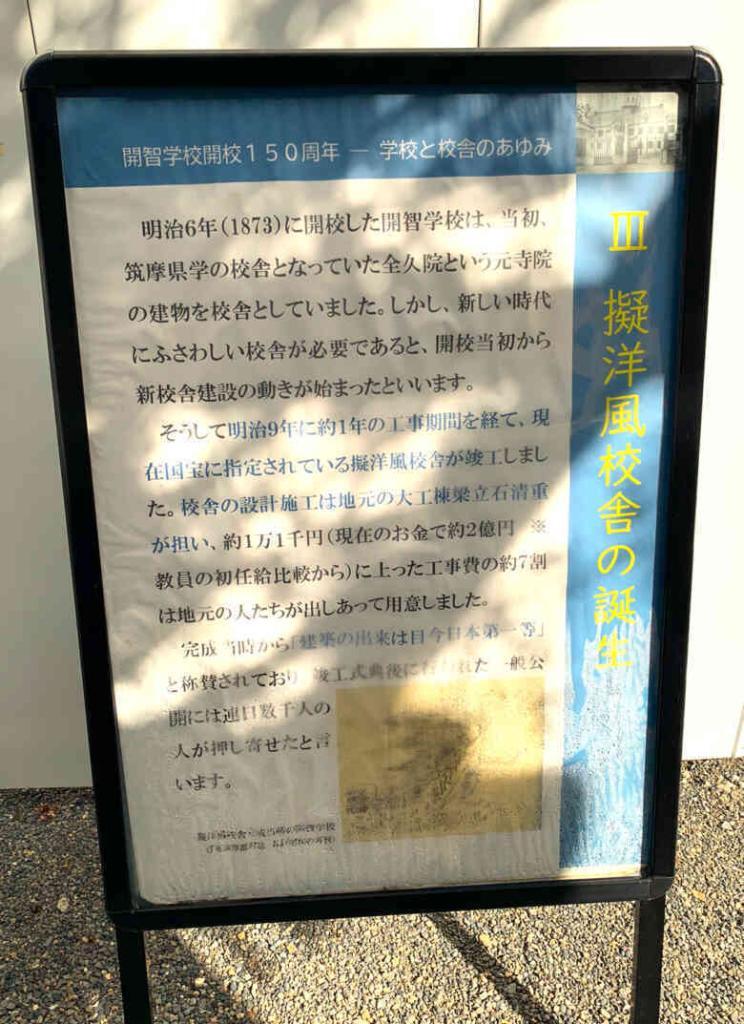 開智学校開校１５０周年 ― 学校と校舎のあゆみ
Ⅲ 擬洋風校舎の誕生
明治6年(1873)に開校した開智学校は、当初、
筑摩県学の校舎となっていた全久院という元寺院
の建物を校舎としていました。しかし、新しい時代
にふさわしい校舎が必要であると、開校当初から
新校舎建設の動きが始まったといいます。
そうして明治9年に約1年の工事期間を経て、現
在国宝に指定されている擬洋風校舎が竣工しまし
た。校舎の設計施工は地元の大工棟梁立石清重
が担い、約1万1千円(現在のお金で約2億円 ※
教員の初任給比較から)に上った工事費の約7割
は地元の人たちが出しあって用意しました。
完成当時から「建築の出来は目今日本第一等」
と称賛されており、竣工式典後に行われた一般公
開には連日数千人の
人が押し寄せたと言
います。